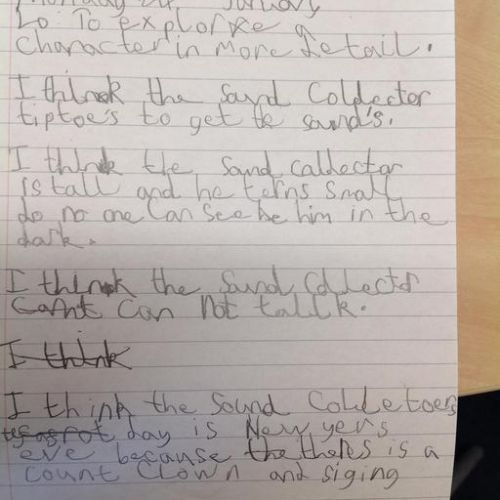 Lo To explorke a
character in more detail.
I think the sound Collector
tiptoe's to get te sound's.
I think the sound collector
is tall and he terns small
do no one can see he him in the
dark.
I think the sound collector
can Not talk.
I think
I think the Sound Colletoers
day is New yers
eve because the thers is a
count clown and siging